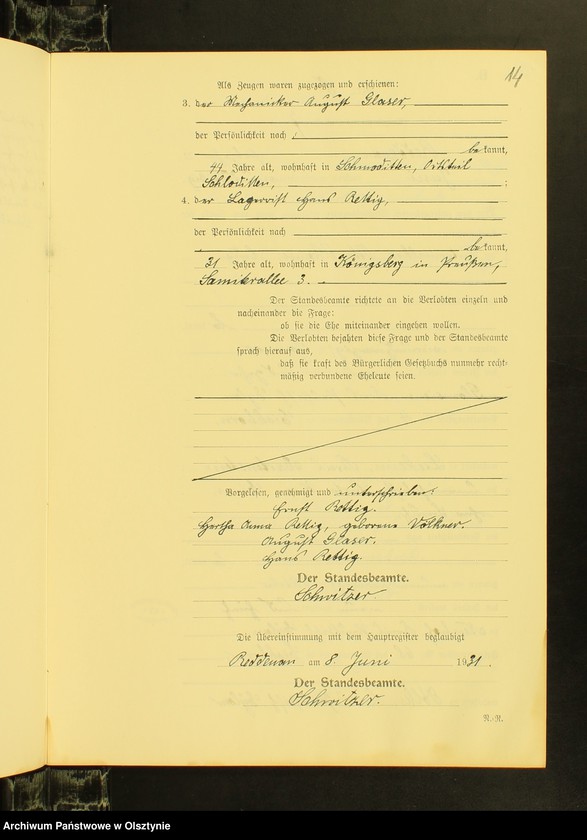 14
Als Zeugen waren zugezogen und erschienen:
3. der Mechaniker August Glaser,
der Persönlichkeit nach
bekannt,
44 Jahre alt, wohnhaft in Schmoditten, Ortsteil
Schloditten, ;
4. der Lagerist Hans Rettig,
der Persönlichkeit nach
bekannt,
31 Jahre alt, wohnhaft in Königsberg in Preußen,
3.
Der Standesbeamte richtete an die Verlobten einzeln und
nacheinander die Frage:
ob sie die Ehe miteinander eingehen wollen.
Die Verlobten bejahten diese Frage und der Standesbeamte
sprach hierauf aus,
daß sie kraft des Bürgerlichen Gesetzbuchs nunmehr recht-
mäßig verbundene Eheleute seien.
Vorgelesen, genehmigt und unterschrieben:
Ernst Rettig.
Hertha Anna Rettig, geborene Völkner.
August Glaser.
Hans Rettig.
Der Standesbeamte.
Schwitzer.
Die Übereinstimmung mit dem Hauptregister beglaubigt
Reddenau am 8. Juni 1931.
Der Standesbeamte.
Schwitzer.
R.-R.
Archiwum Państwowe w Olsztynie